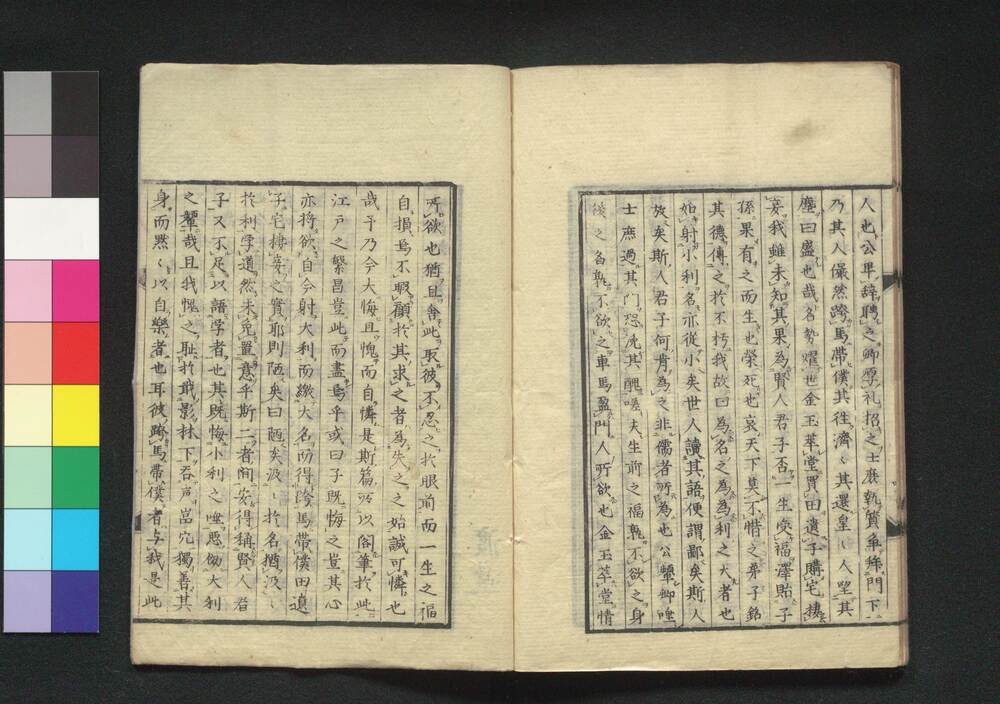 人也公卑辞聘之卿厚礼招之士庶執贄爭拜門下
乃其人儼然跨馬帶僕其往濟〻其還皇〻人望其
塵曰盛也哉名勢燿世金玉萃堂買田遺子購宅摟
妾我雖未知其果為賢人君子否一生突福澤貽子
孫果有之而生也榮死也哀天下莫不惜之弟子銘
其德傳之於不朽我故曰為名之為為利之大者也
如射小利名亦從小矣世人讀其語便謂鄙矣斯人
放矣斯人君子何肯為之非儒者所為也公顰卿唾
士庶過其門恐洗其醒嗟夫生前之福孰不欲之身
後之名孰不欲之車馬盈門人所欲也金玉萃堂情
所欲也猶且舍此取彼不忍之於眼前而一生之福
自損焉不暇顧於其求之者為失之之始誠可憐也
哉予乃今大悔且愧而自憐是斯篇所以閣筆於此
江戶之繁昌豈此而盡焉乎或曰子既悔之豈其心
亦將欲自今射大利而繳大名而得跨馬帶僕田遺
子宅摟妾之實耶則陋矣曰陋矣汲〻於名猶汲〻
於利學道然未免置意乎斯二者間安得稱賢人君
子又不足以語学者也其既悔小利之唾惡㑃大利
之顰哉且我愧之耻於戢影林下吞声嵓穴獨善其
身而默〻以自樂者也耳彼跨馬帶僕者与我是此